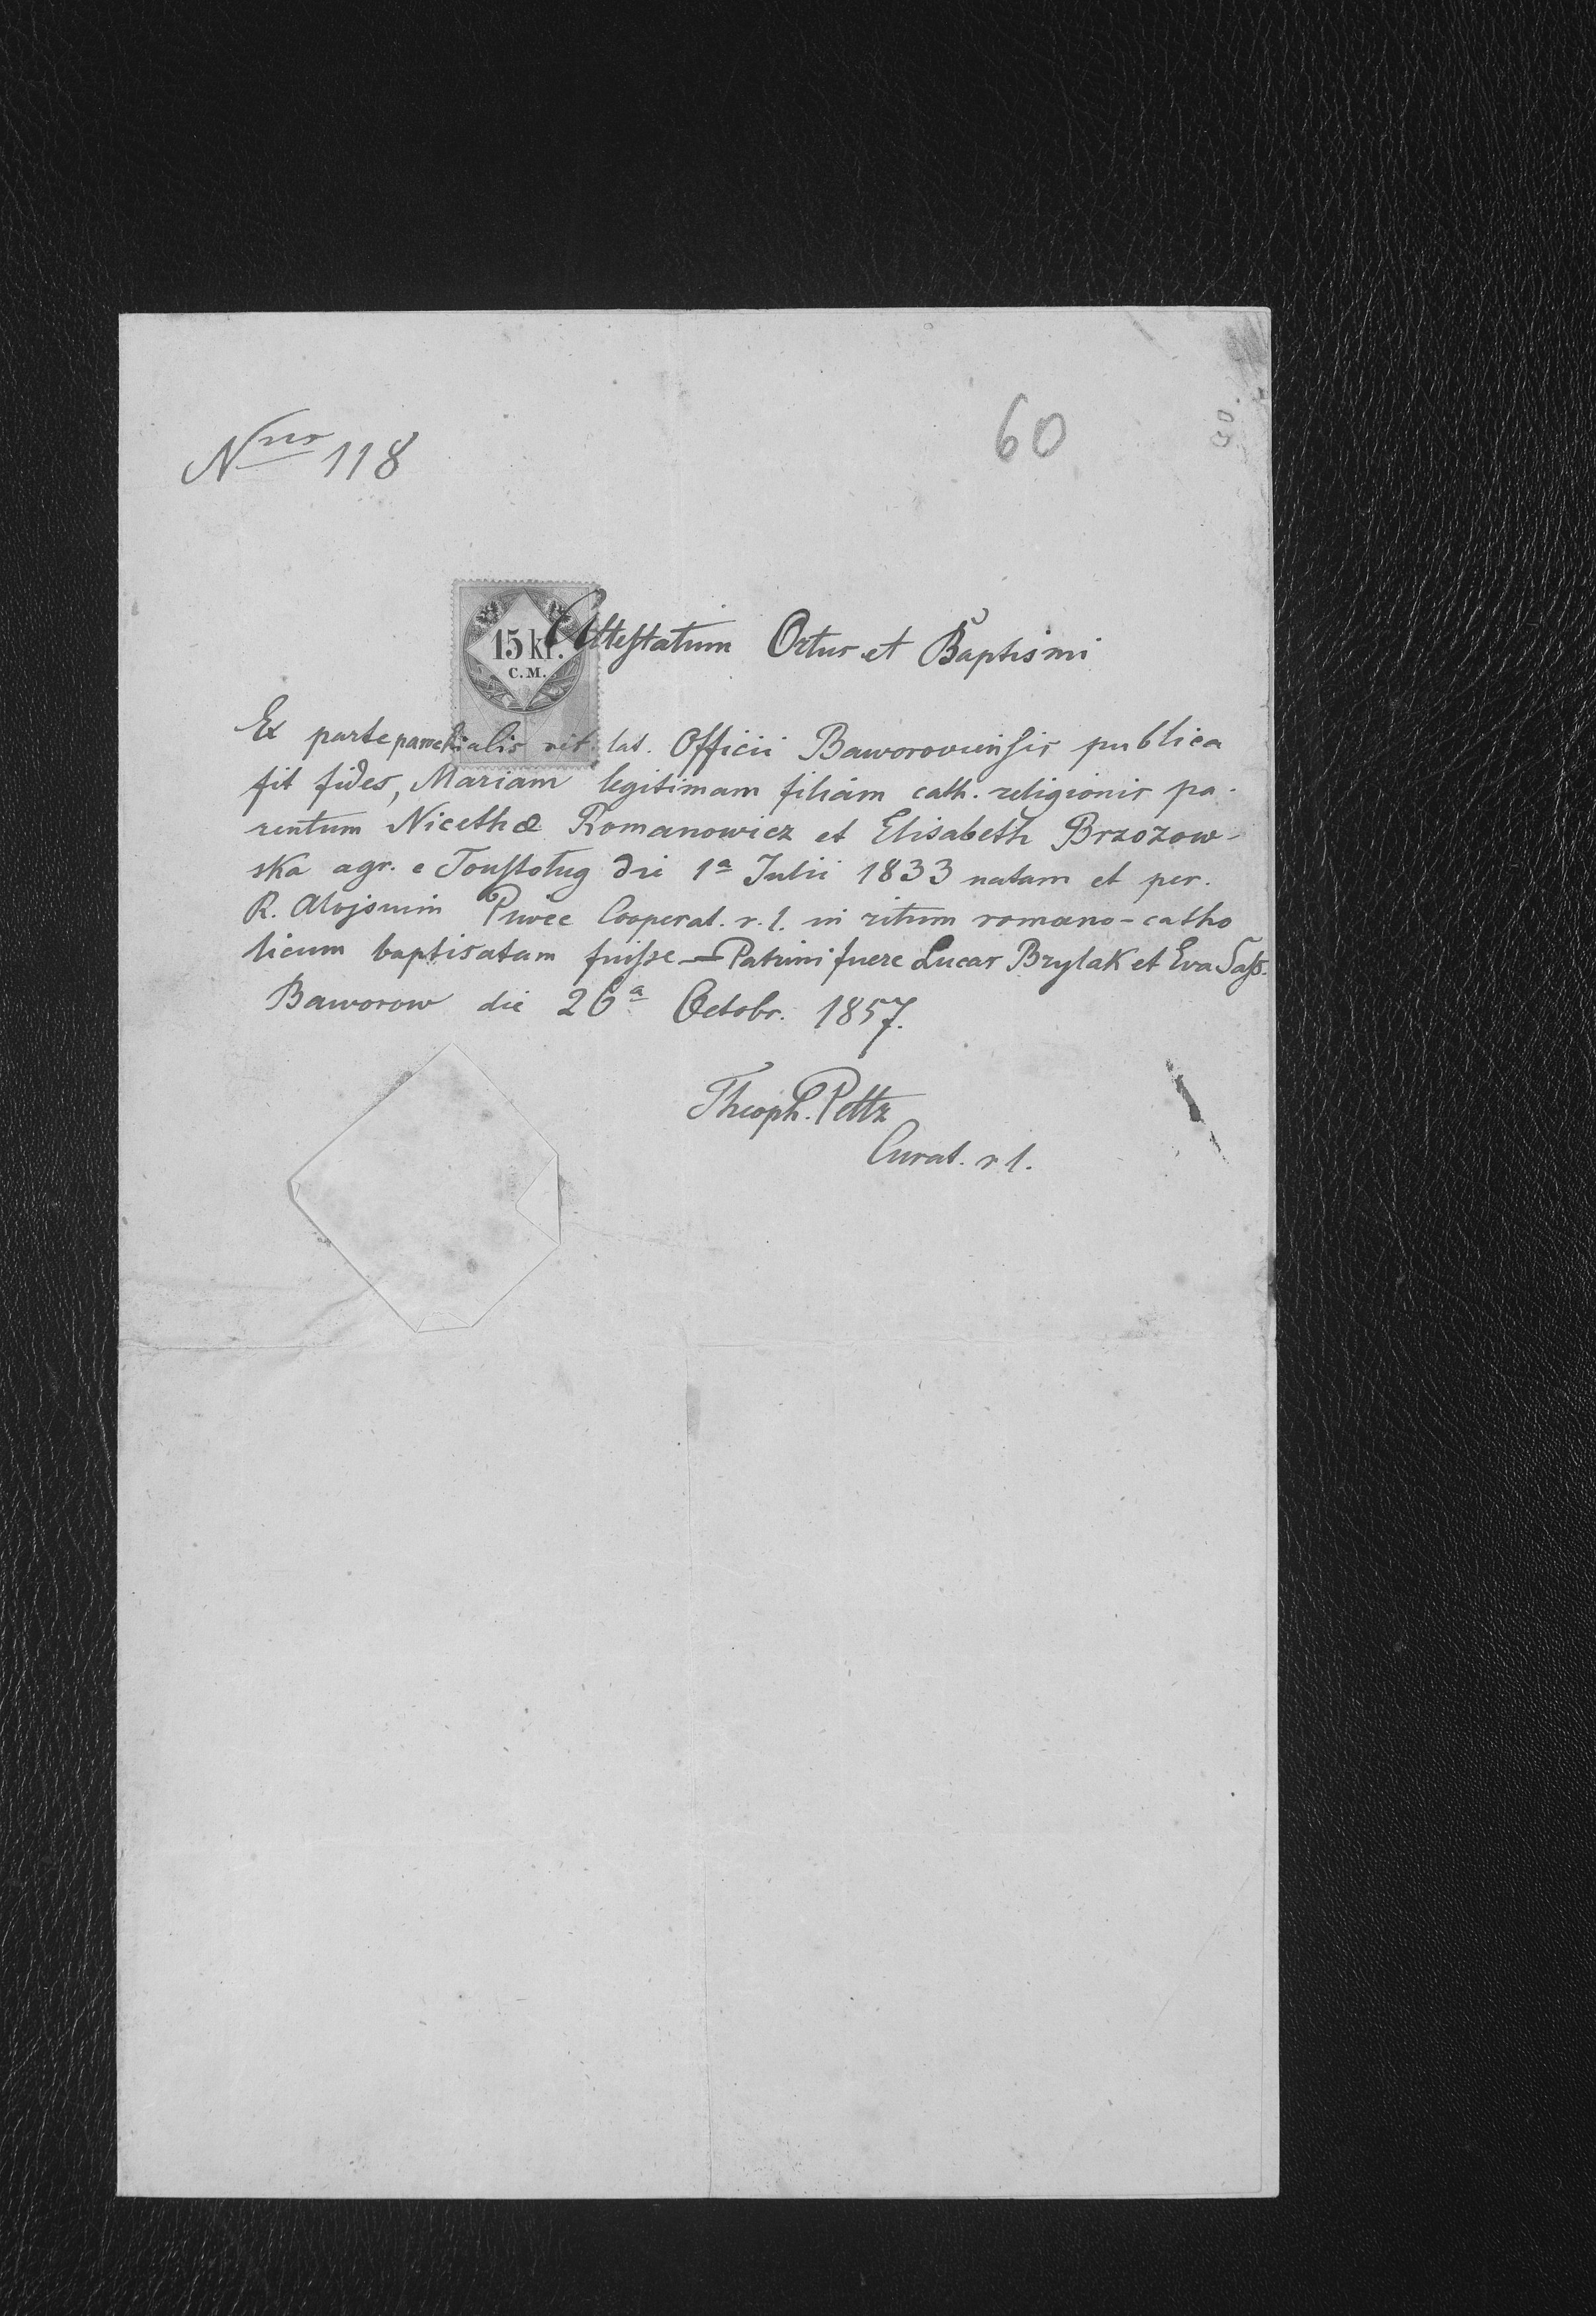 Nrus 118
60
15 kr.
C.M.
Attestatum Ortus et Baptismi
Ex parte parochialis rit. lat. Officii Baworoviensis publica
fit fides, Mariam legitimam filiam cath. religionis pa-
rentum Nicethæ Romanowicz et Elisabeth Brzozow-
ska agr. e Toustoług die 1a Julii 1833 natam et per.
R. Alojsium Cooperat. r. l. in ritum romano-catho
licum baptisatam fuisse — Patrini fuere Lucas Brylak et Eva Sass.
Baworow die 26a Octobr. 1857.
Theoph. Peltz
Curat. r. l.